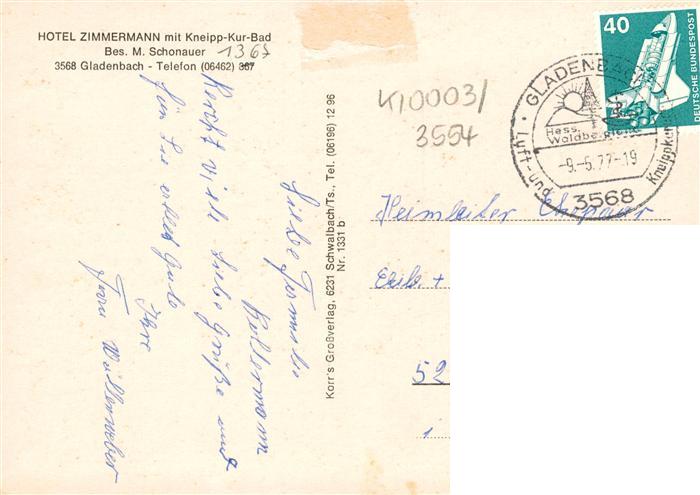 HOTEL ZIMMERMANN mit Kneipp-Kur-Bad
Bes. M. Schonauer
3568 Gladenbach - Telefon (06462) 367
1367
K10003/
3554
40
DEUTSCHE BUNDESPOST
GLADENBACH
Hess.
Waldbergland
-9.-5.77-19
Luft- und Kneippkurort
3568
Korr's Großverlag, 6231 Schwalbach/Ts., Tel. (06196) 12 96
Nr. 1331 b
Liebe Familie
Kellermann
Recht viele liebe Grüße und
für Sie alles Gute
Ihre
Frau
Heimleiter
52